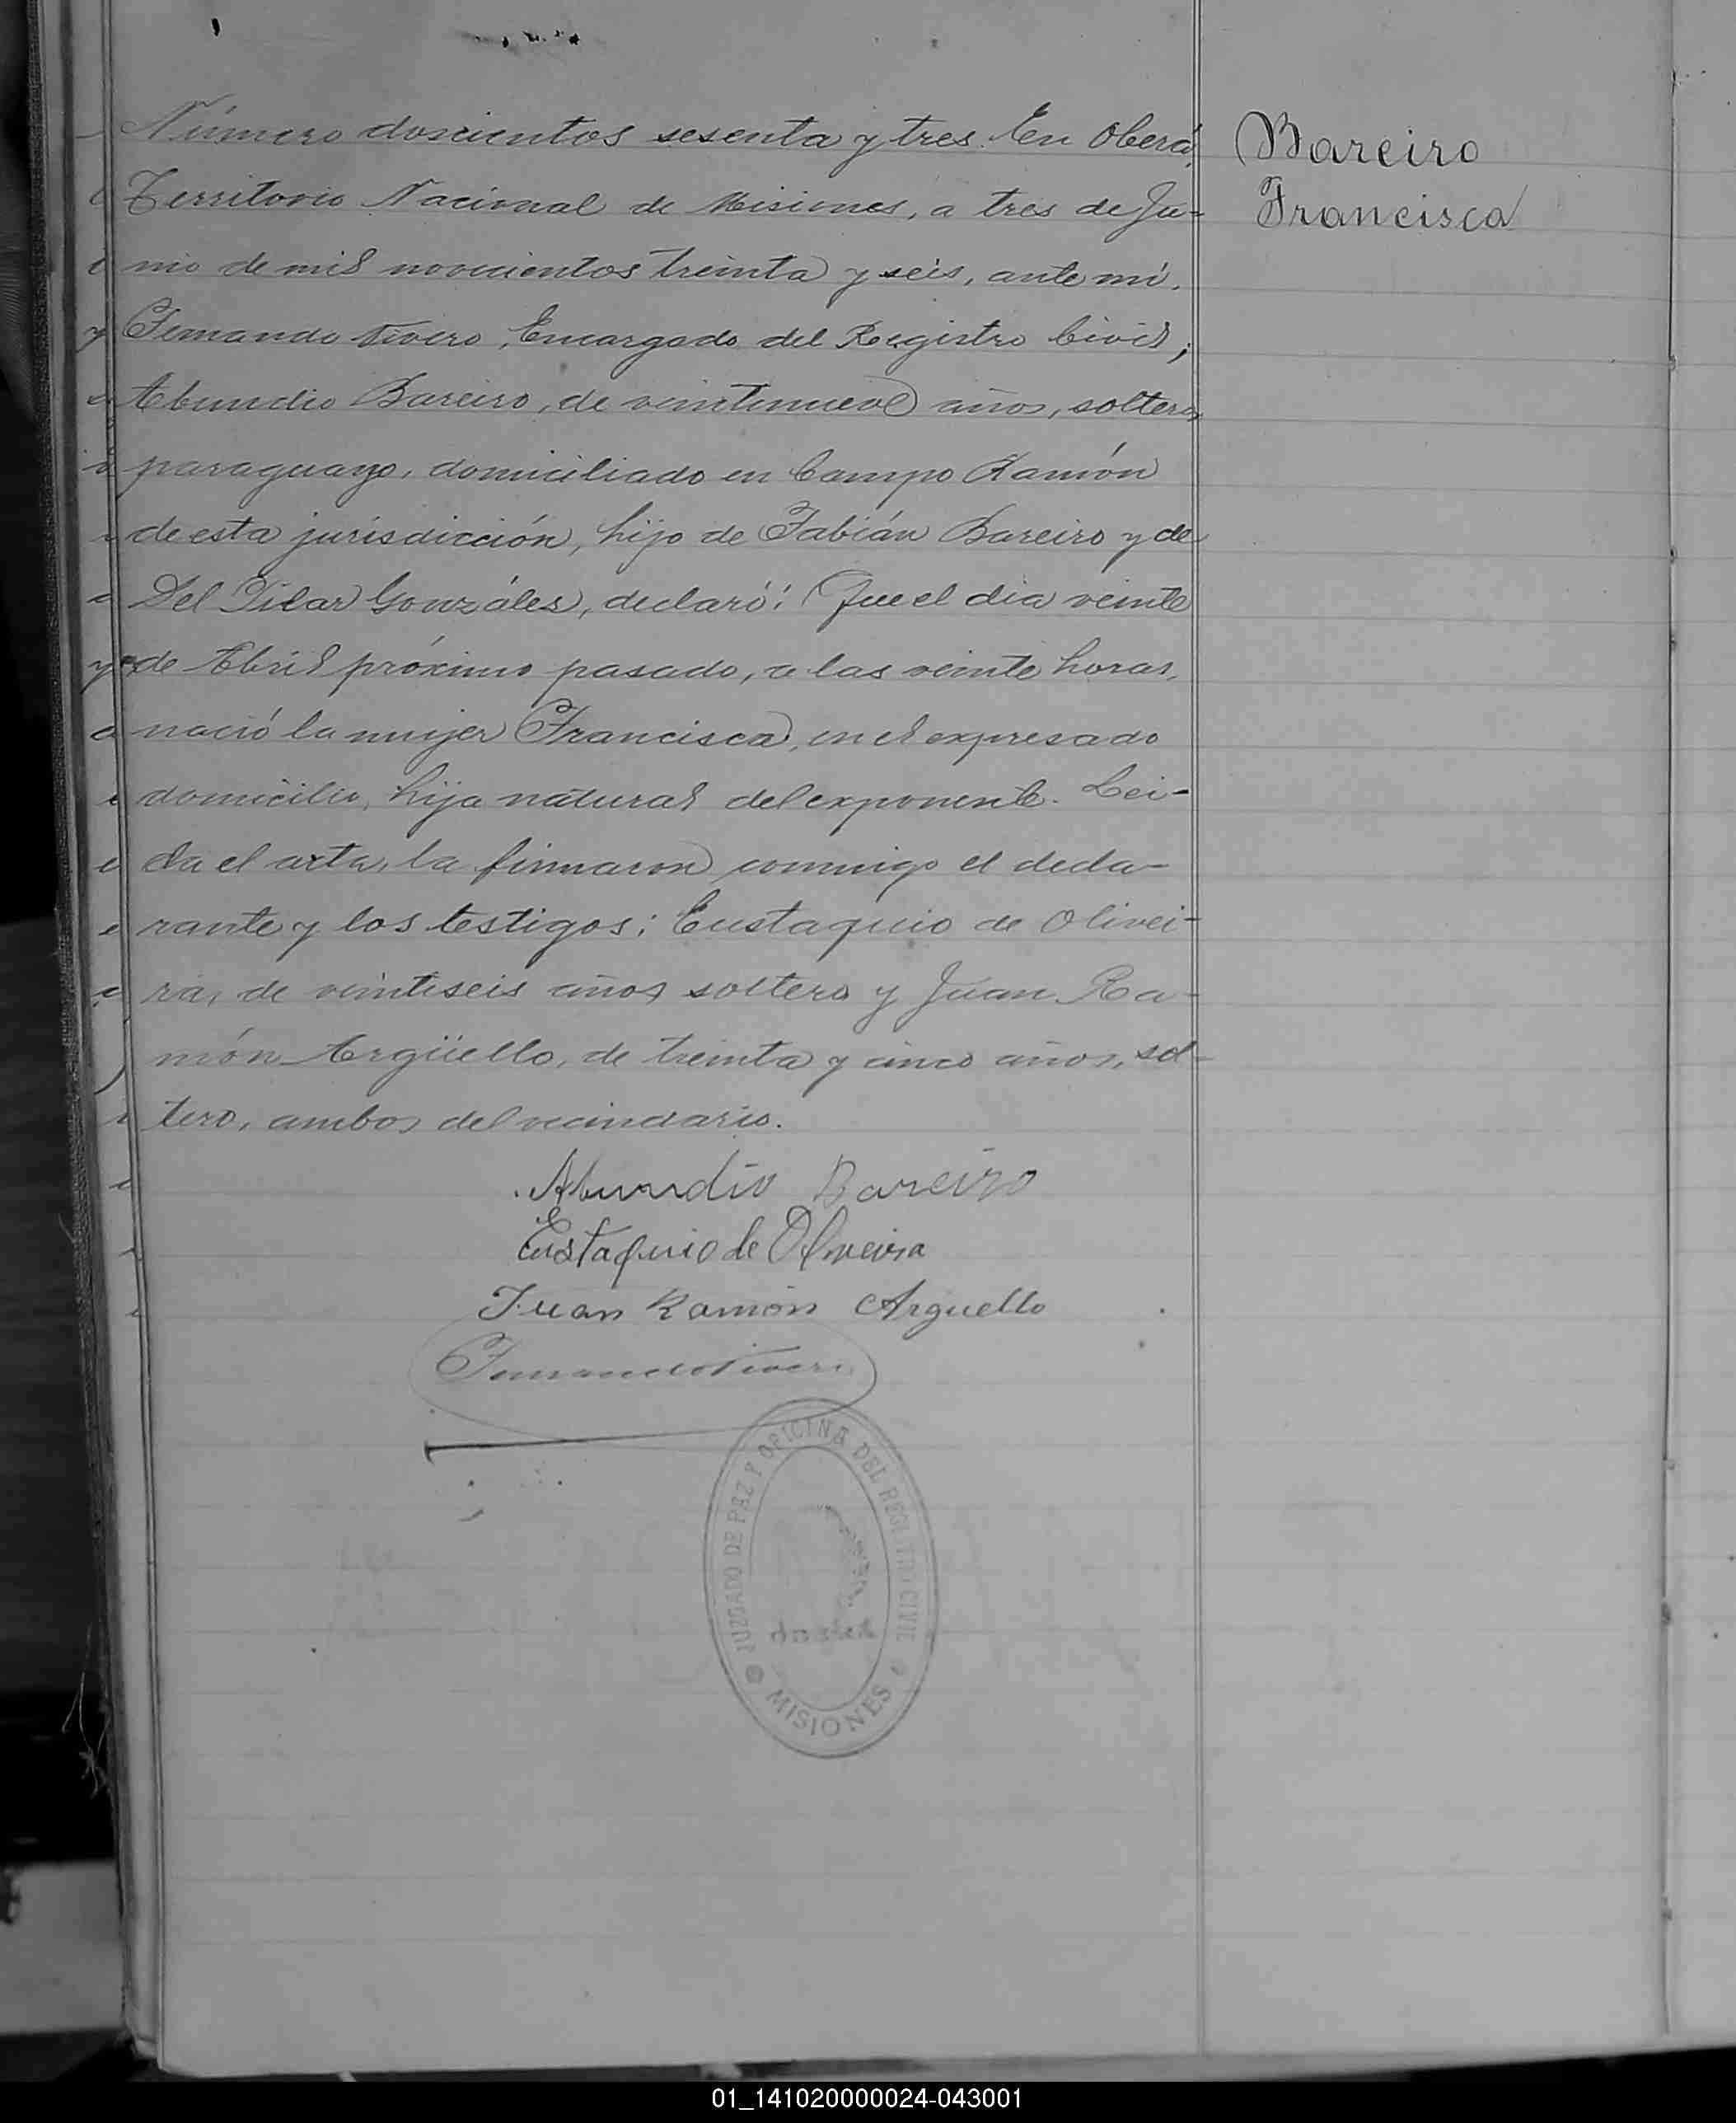 Número doscientos sesenta y tres. En Oberá,
Territorio Nacional de Misiones, a tres de Ju-
nio de mil novecientos treinta y seis, ante mí,
Fernando Rivero, Encargado del Registro Civil,
Abundio Bareiro, de veintinueve años, soltero,
paraguayo, domiciliado en Campo Ramón
de esta jurisdicción, hijo de Fabián Bareiro y de
Del Pilar Gonzáles, declaró: Que el día veinte
de Abril próximo pasado, a las veinte horas,
nació la mujer Francisca, en el expresado
domicilio, hija natural del exponente. Lei-
da el acta, la firmaron conmigo el decla-
rante y los testigos: Eustaquio de Olivei-
ra, de veintiseis años soltero y Juan Ra-
món Argüello, de treinta y cinco años, sol-
tero, ambos del vecindario.
Abundio Bareiro
Eustaquio de Oliveira
Juan Ramón Arguello
Bareiro
Francisca
JUZGADO DE PAZ Y OFICINA DEL REGISTRO CIVIL
MISIONES
01_141020000024-043001